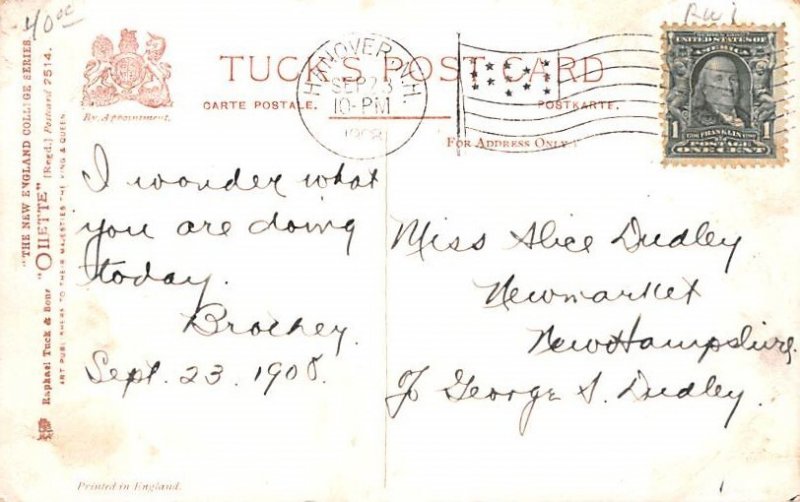 4000
"THE NEW ENGLAND COLLEGE SERIES."
Raphael Tuck & Sons' "OILETTE" (Regd.) Postcard 2514.
ART PUBLISHERS TO THEIR MAJESTIES THE KING & QUEEN
By Appointment.
TUCK'S POST CARD
CARTE POSTALE.
POSTKARTE.
FOR ADDRESS ONLY.
HANOVER, N.H.
SEP 23
10-PM
1908
UNITED STATES OF
AMERICA
1
FRANKLIN
1
POSTAGE
ONE CENT
I wonder what
you are doing
today.
Sept. 23. 1908.
Miss Alice Dudley
Newmarket
New Hampshire
George S. Dudley.
Printed in England.